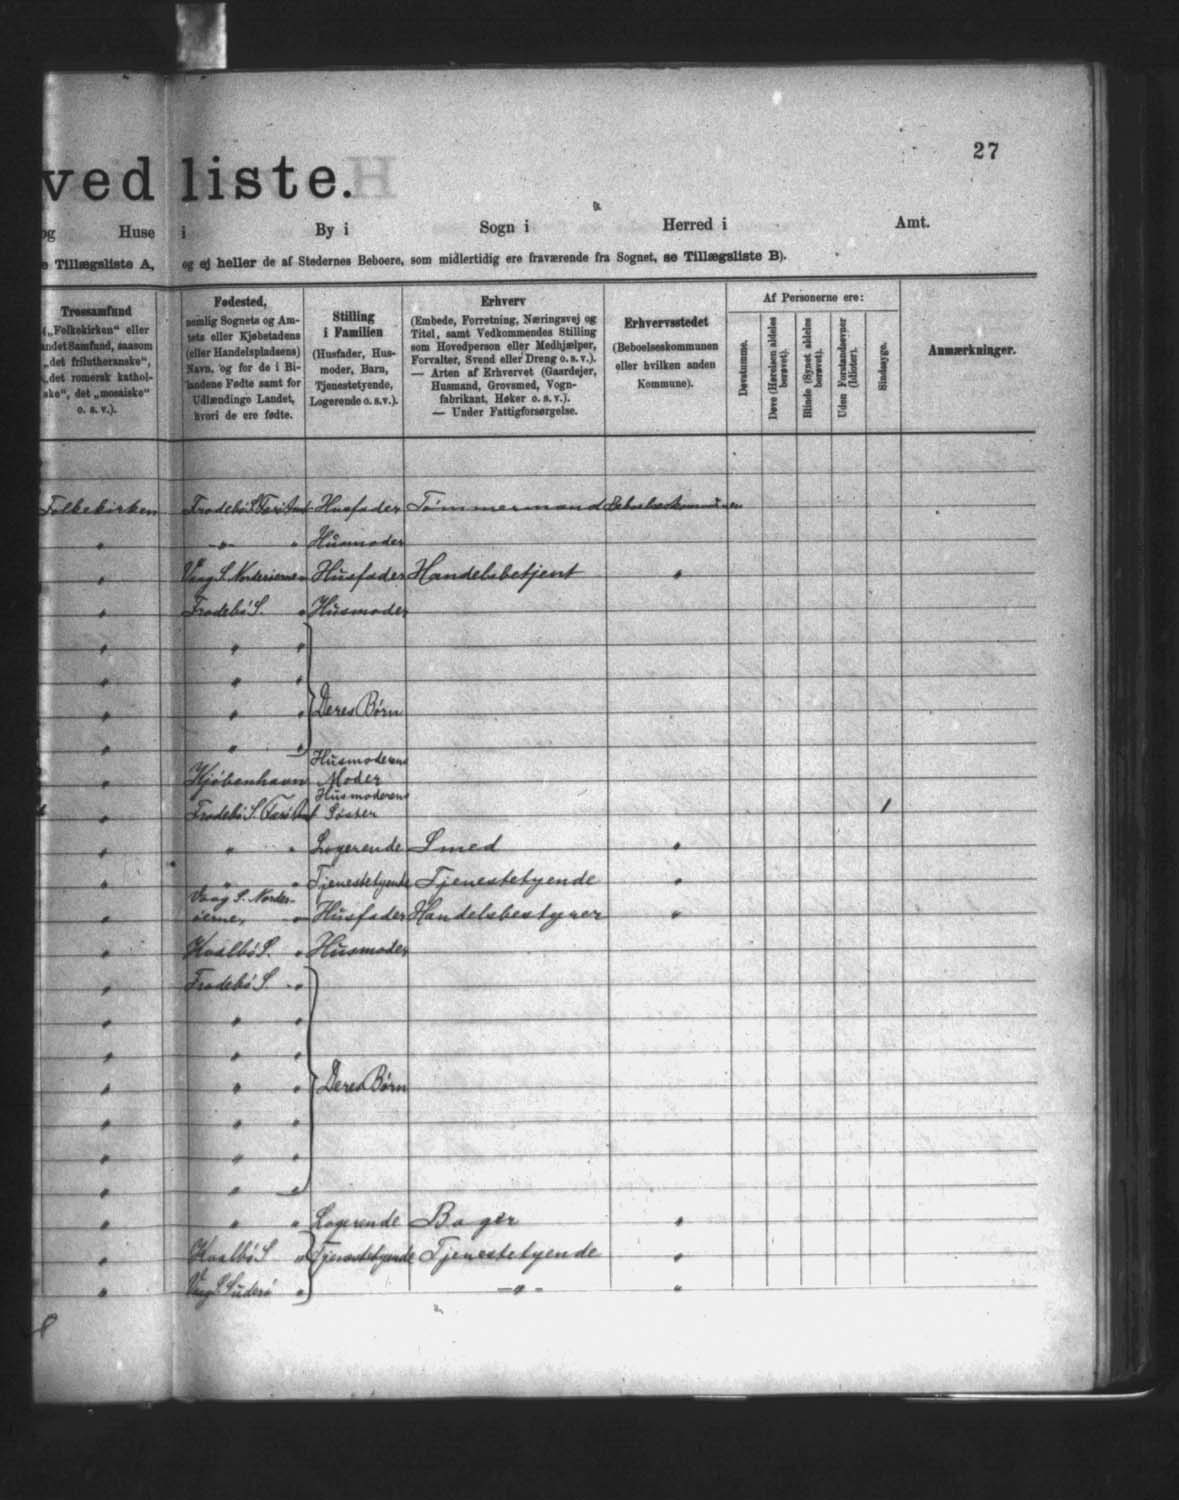 27
ved liste.
og Huse i By i Sogn i Herred i Amt.
e Tillægsliste A, og ej heller de af Stedernes Beboere, som midlertidig ere fraværende fra Sognet, se Tillægsliste B).
Trossamfund
(„Folkekirken“ eller
andet Samfund, saasom
„det frilutheranske“,
„det romersk kathol-
ske“, det „mosaiske“
o. s. v.).
Fødested,
nemlig Sognets og Am-
tets eller Kjøbstadens
(eller Handelspladsens)
Navn, og for de i Bi-
landene Fødte samt for
Udlændinge Landet,
hvori de ere fødte.
Stilling
i Familien
(Husfader, Hus-
moder, Barn,
Tjenestetyende,
Logerende o. s. v.).
Erhverv
(Embede, Forretning, Næringsvej og
Titel, samt Vedkommendes Stilling
som Hovedperson eller Medhjælper,
Forvalter, Svend eller Dreng o. s. v.).
— Arten af Erhvervet (Gaardejer,
Husmand, Grovsmed, Vogn-
fabrikant, Høker o. s. v.).
— Under Fattigforsørgelse.
Erhvervsstedet
(Beboelseskommunen
eller hvilken anden
Kommune).
Af Personerne ere:
Døvstumme.
Døve (Hørelsen aldeles
berøvet).
Blinde (Synet aldeles
berøvet).
Uden Forstandsevner
(Idioter).
Sindssyge.
Anmærkninger.
Folkekirken Frodebö S. Færö Amt Husfader Tömmermand Beboelseskommunen
" —"— " Husmoder
" Vaag S. Norderøerne " Husfader Handelsbetjent "
" Frodebö S. " Husmoder
" " "
" " "
" " " Deres Børn
" " "
" Kjöbenhavn Husmoderens Moder
" Frodebö S. Færö Amt Husmoderens Söster 1
" " " Logerende Smed "
" " " Tjenestetyende Tjenestetyende "
" Vaag S. Norder-
øerne, " Husfader Handelsbestyrer "
" Hvalbö S. " Husmoder
" Frodebö S. "
" " "
" " "
" " " Deres Børn
" " "
" " "
" " "
" " " Logerende Bager "
" Hvalbö S " Tjenestetyende Tjenestetyende "
" Vaag S Suderö " —"— "